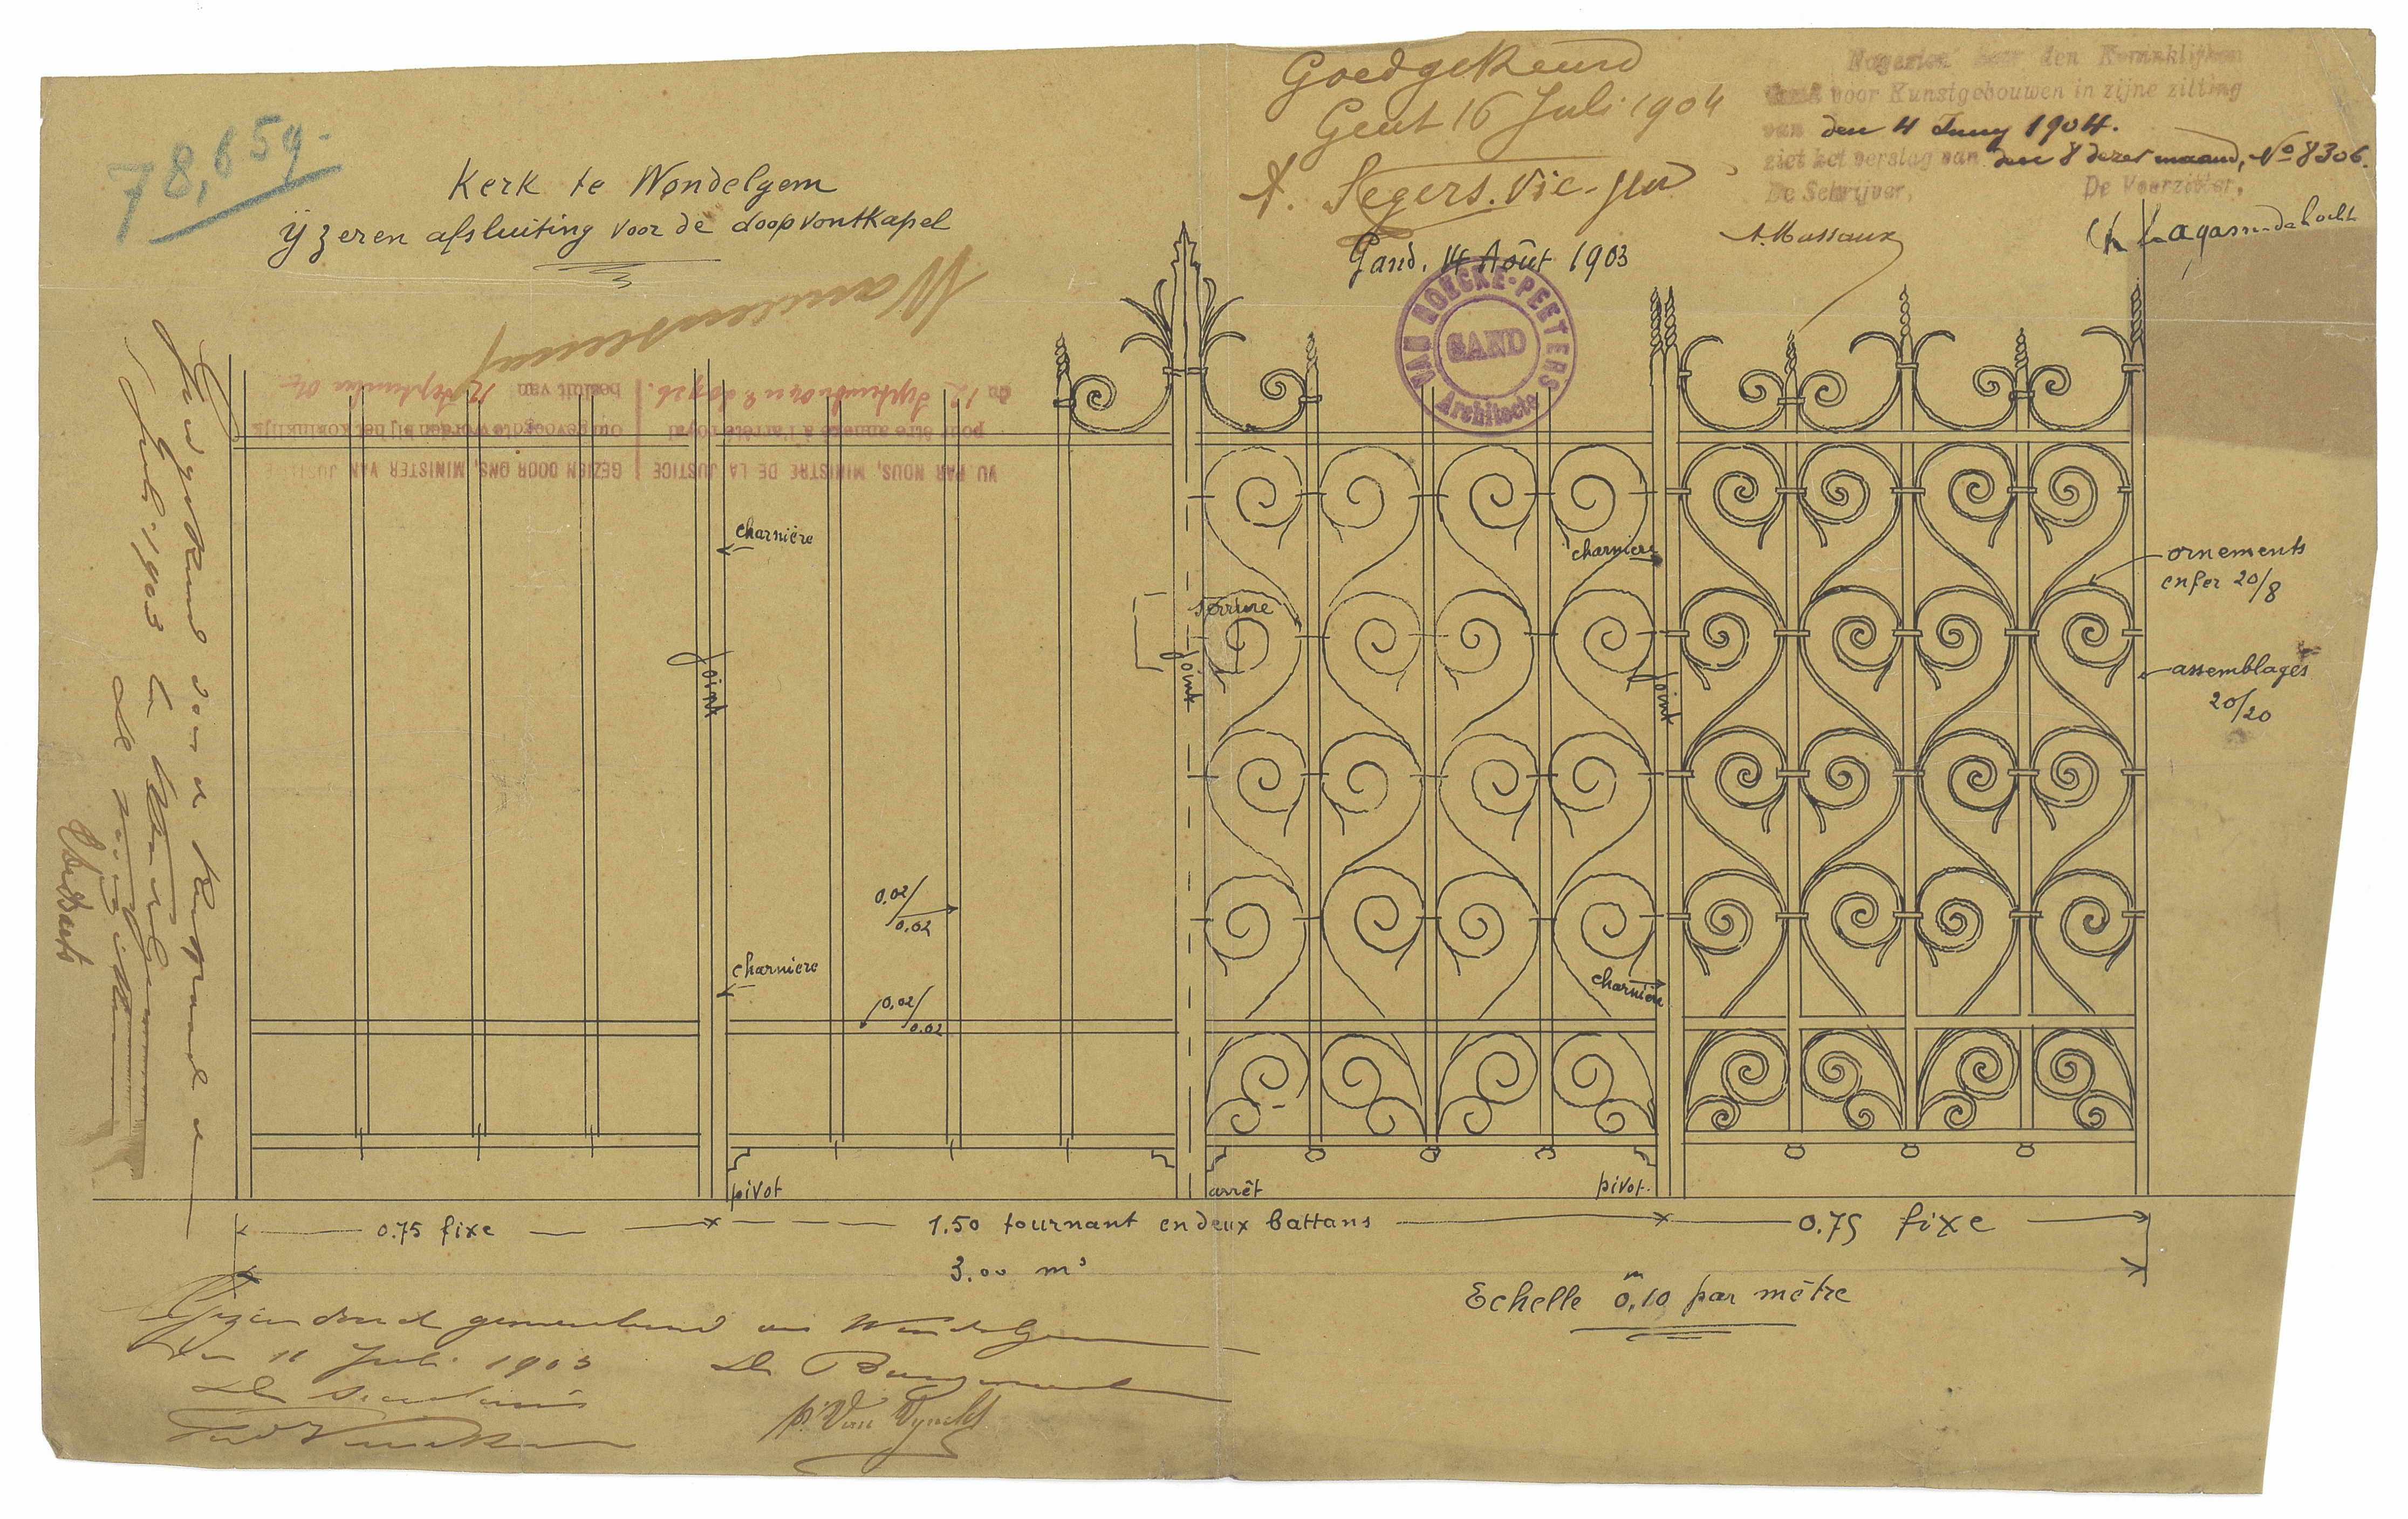 78,859.-
Kerk te Wondelgem
ijzeren afsluiting voor de doopvontkapel
Goedgekeurd
Gent 16 Juli 1904
A. Segers. Vic-gen
Gand, 14 Août 1903
VAN HOECKE-PEETERS
GAND
Architecte
Nagezien door den Koninklijken
voor Kunstgebouwen in zijne zitting
van den 4 Juny 1904.
ziet het verslag van den 8 dezer maand, No 8306.
De Schrijver, De Voorzitter,
A. Massaux
VU PAR NOUS, MINISTRE DE LA JUSTICE
pour être annexé à l'arrêté royal
du 12 Septembre
GEZIEN DOOR ONS, MINISTER VAN JUSTITIE
om gevoegd te worden bij het koninklijk
besluit van 12 September 04
charnière
charniere
serrure
joint
joint
joint
ornements
en fer 20/8
assemblages
20/20
0,02/0.02
charniere
0,02/0.02
charnière
pivot
arrêt
pivot.
0.75 fixe
1.50 tournant en deux battans
0.75 fixe
3.00 m
Echelle 0,m10 par mètre
Goedgekeurd door de kerkraad
Juli 1903
Gezien door de gemeenteraad van Wondelgem
den 11 Juli 1903
De Secretaris
De Burgemeester